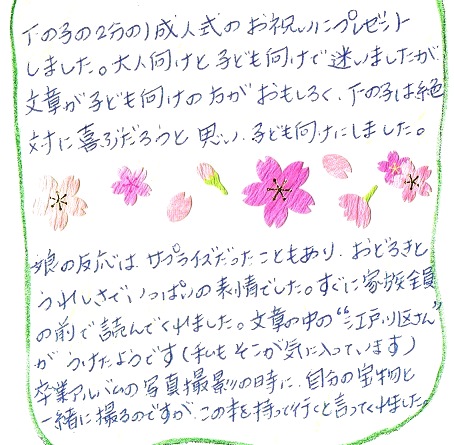 下の子の2分の1成人式のお祝いにプレゼント
しました。大人向けと子ども向けで迷いましたが
文章が子ども向けの方がおもしろく、下の子は絶
対に喜ぶだろうと思い、子ども向けにしました。
娘の反応は、サプライズだったこともあり、おどろきと
うれしさでいっぱいの表情でした。すぐに家族全員
の前で読んでくれました。文章の中の“江戸川区さん”
がうけたようです(私もそこが気に入っています)
卒業アルバムの写真撮影の時に、自分の宝物と
一緒に撮るのですが、この本を持って行くと言ってくれました。